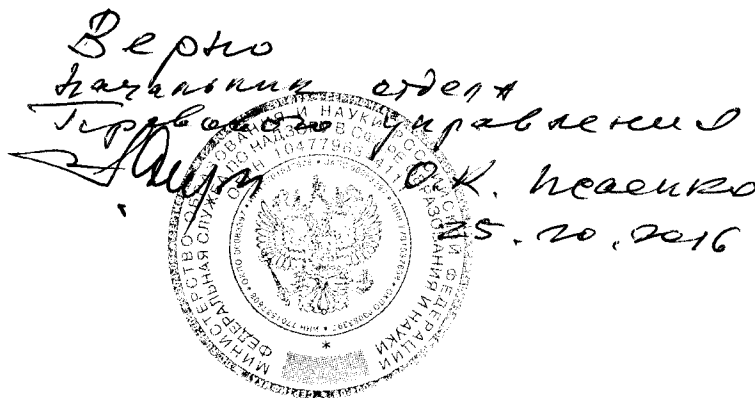 Верно
Начальник отдела
Правового управления
О.К. Исаенко
25.10.2016
МИНИСТЕРСТВО ОБРАЗОВАНИЯ И НАУКИ РОССИЙСКОЙ ФЕДЕРАЦИИ
ФЕДЕРАЛЬНАЯ СЛУЖБА ПО НАДЗОРУ В СФЕРЕ ОБРАЗОВАНИЯ И НАУКИ
ОГРН